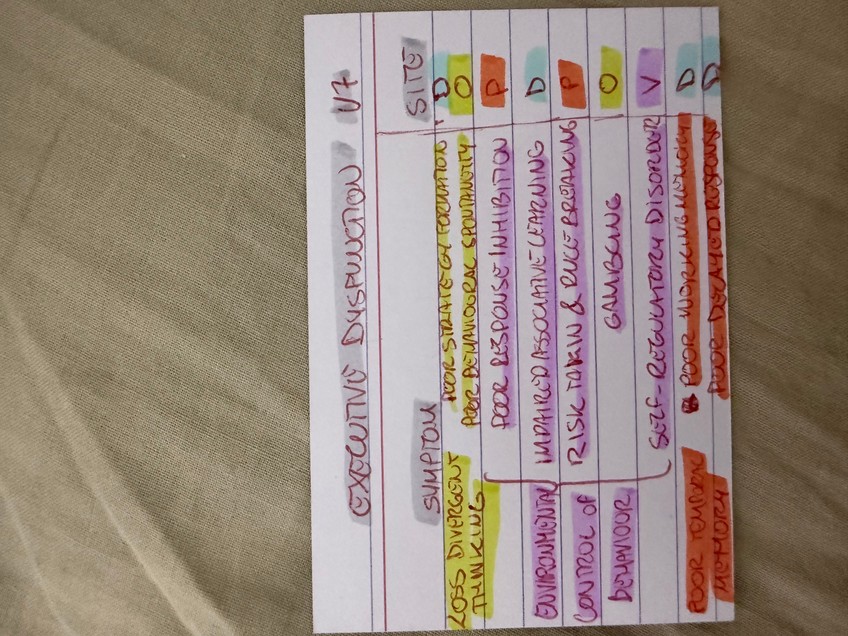 EXECUTIVE DYSFUNCTION V7
SYMPTOM SITE
LOSS DIVERGENT POOR STRATEGY FORMATION D
THINKING POOR BEHAVIOURAL SPONTANEITY O
POOR RESPONSE INHIBITION P
ENVIRONMENTAL IMPAIRED ASSOCIATIVE LEARNING D
CONTROL OF RISK TAKIN & RULE BREAKING P
BEHAVIOUR GAMBLING O
SELF-REGULATORY DISORDER V
POOR TEMPORAL POOR WORKING MEMORY D
MEMORY POOR DELAYED RESPONSE D